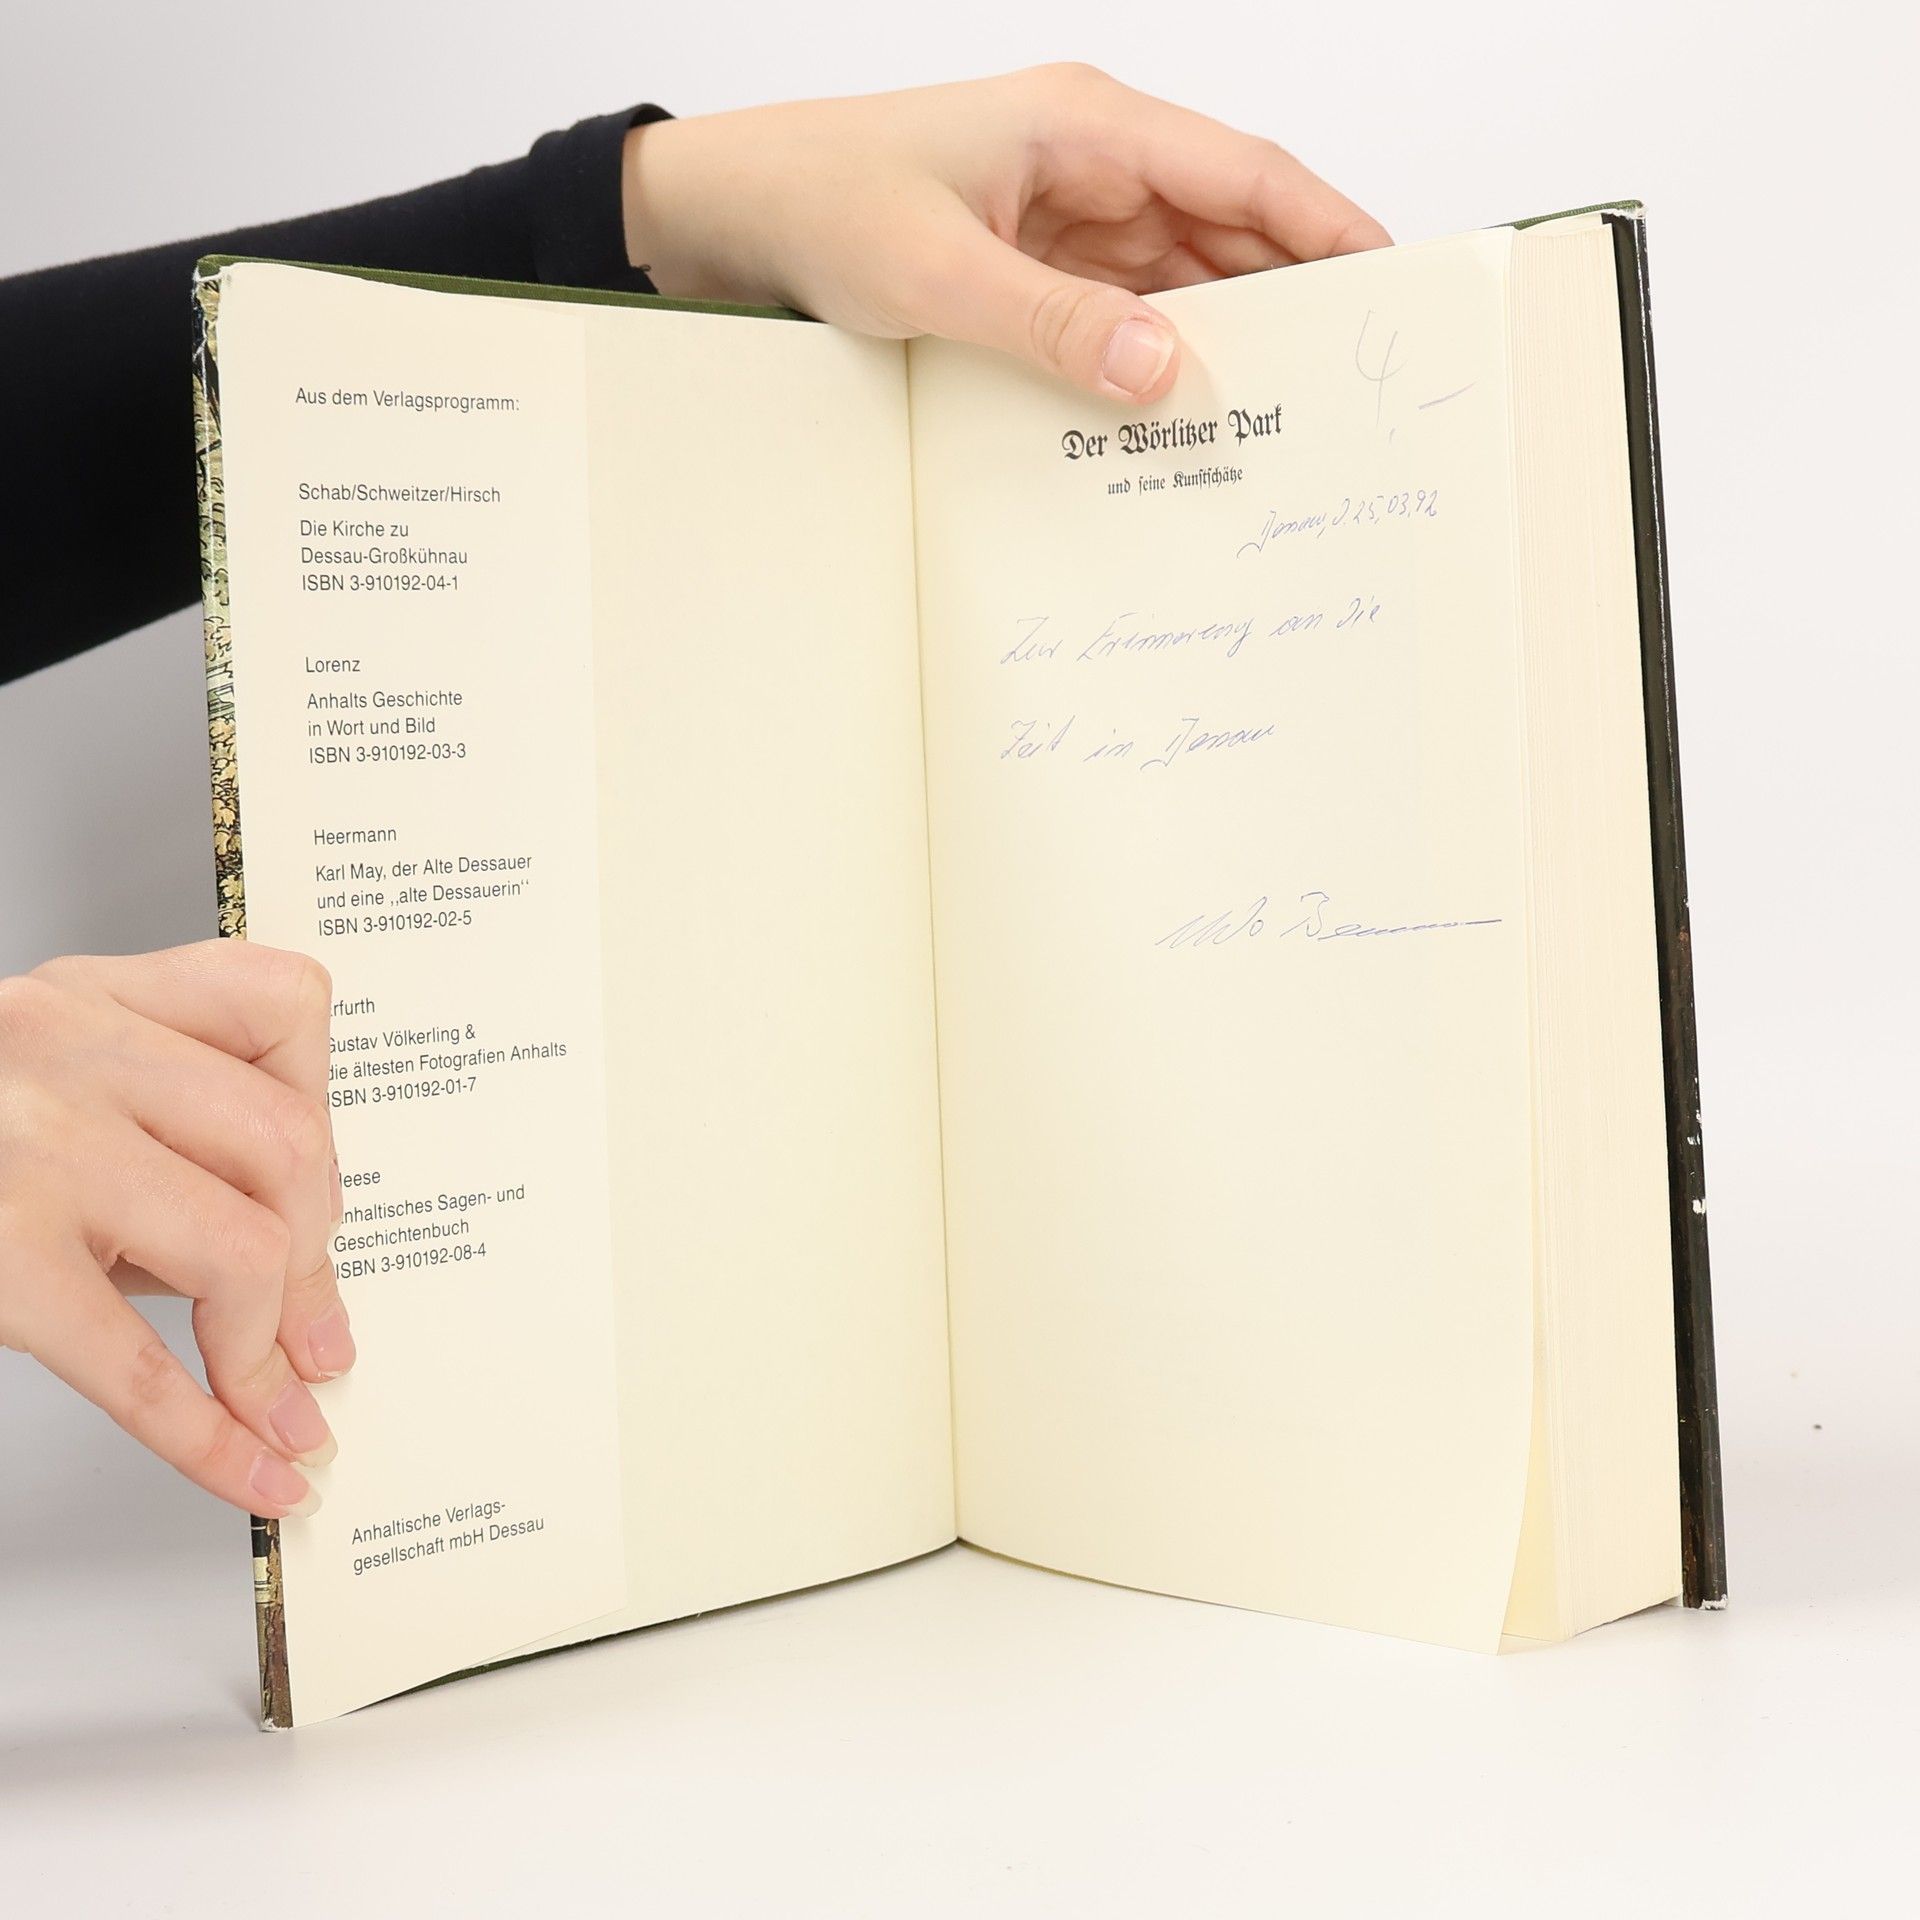 Aus dem Verlagsprogramm:
Schab/Schweitzer/Hirsch
Die Kirche zu
Dessau-Großkühnau
ISBN 3-910192-04-1
Lorenz
Anhalts Geschichte
in Wort und Bild
ISBN 3-910192-03-3
Heermann
Karl May, der Alte Dessauer
und eine ,,alte Dessauerin‘‘
ISBN 3-910192-02-5
rfurth
Gustav Völkerling &
die ältesten Fotografien Anhalts
ISBN 3-910192-01-7
eese
nhaltisches Sagen- und
Geschichtenbuch
ISBN 3-910192-08-4
Anhaltische Verlags-
gesellschaft mbH Dessau
4,–
Der Wörlitzer Park
und seine Kunstschätze
Dessau, d. 25.03.92
Zur Erinnerung an die
Zeit in Dessau